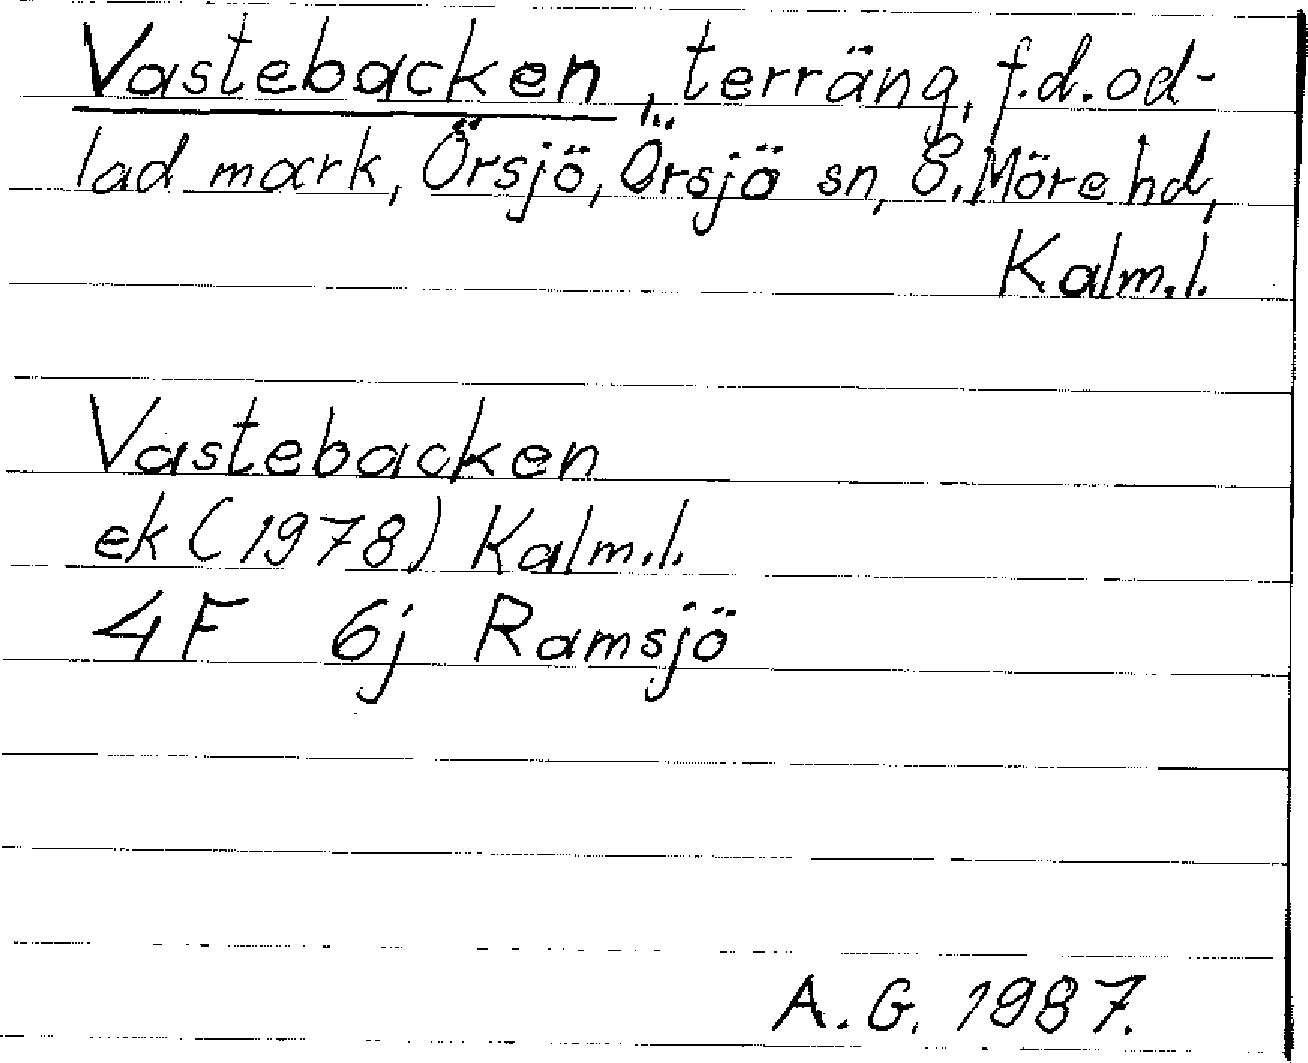 Vastebacken, terräng, f.d. od-
lad mark, Örsjö, Örsjö sn, S. Möre hd,
Kalm.l.
Vastebacken
ek (1978) Kalm.l.
4F 6j Ramsjö
A.G. 1987.